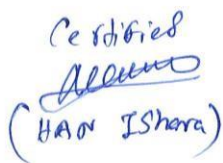 Certified
(HAN IShara)